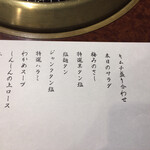 キムチ盛り合わせ
本日のサラダ
極みのユッケ
特選黒タン塩
塩麹タン
ジャンクタン塩
特選ハラミ
わかめスープ
しんしんの上ロース